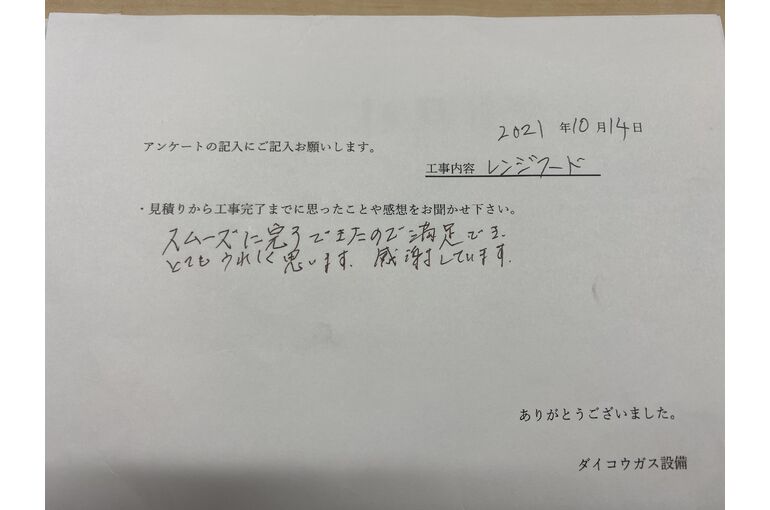 2021 年10月14日
アンケートの記入にご記入お願いします。
工事内容 レンジフード
・見積りから工事完了までに思ったことや感想をお聞かせ下さい。
スムーズに完了できたので満足でき、
とてもうれしく思います。感謝しています。
ありがとうございました。
ダイコウガス設備